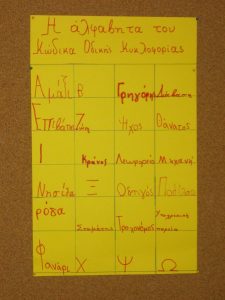 Η αλφαβητα του
Κώδικα Οδικής Κυκλοφορίας
Αμάξι Β Γρηγόρη Διάβαση
Επιβάτη Ζώη Ήχος Θάνατος
Ι Κράνος Λεωφορείο Μηχανή
Νησίδα Ξ Οδηγός Ποδήλατο
ρόδα Σταμάτης Τροχονόμος
Φανάρι Χ Ψ Ω